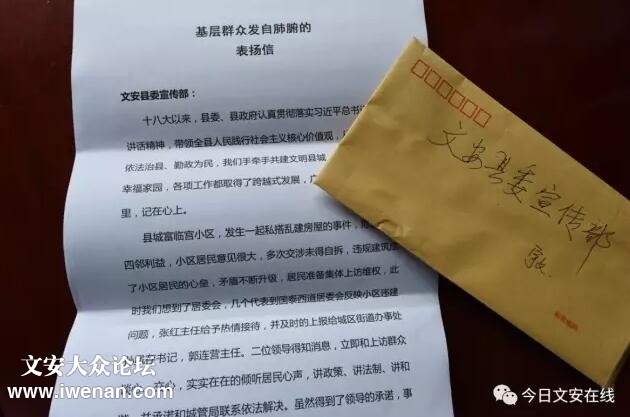 基层群众发自肺腑的
表扬信
文安县委宣传部：
十八大以来，县委、县政府认真贯彻落实习近平总书
讲话精神，带领全县人民践行社会主义核心价值观，
依法治县、勤政为民，我们手牵手共建文明县城
幸福家园，各项工作都取得了跨越式发展，广
里，记在心上。
县城富临宫小区，发生一起私搭乱建房屋的事件，
四邻利益，小区居民意见很大，多次交涉未得自拆，违规建筑
了小区居民的心皇，矛盾不断升级，居民准备集体上访维权，此
时我们想到了居委会，几个代表到国泰西道居委会反映小区违建
问题，张红主任给予热情接待，并及时的上报给城区街道办事处
书记，郭连营主任。二位领导得知消息，立即和上访群众
谈心、交心，实实在在的倾听居民心声，讲政策、讲法制、讲和
并承诺和城管局联系依法解决。虽然得到了领导的承诺，事
文安县委宣传部
敬
文安大众论坛
www.iwenan.com
今日文安在线